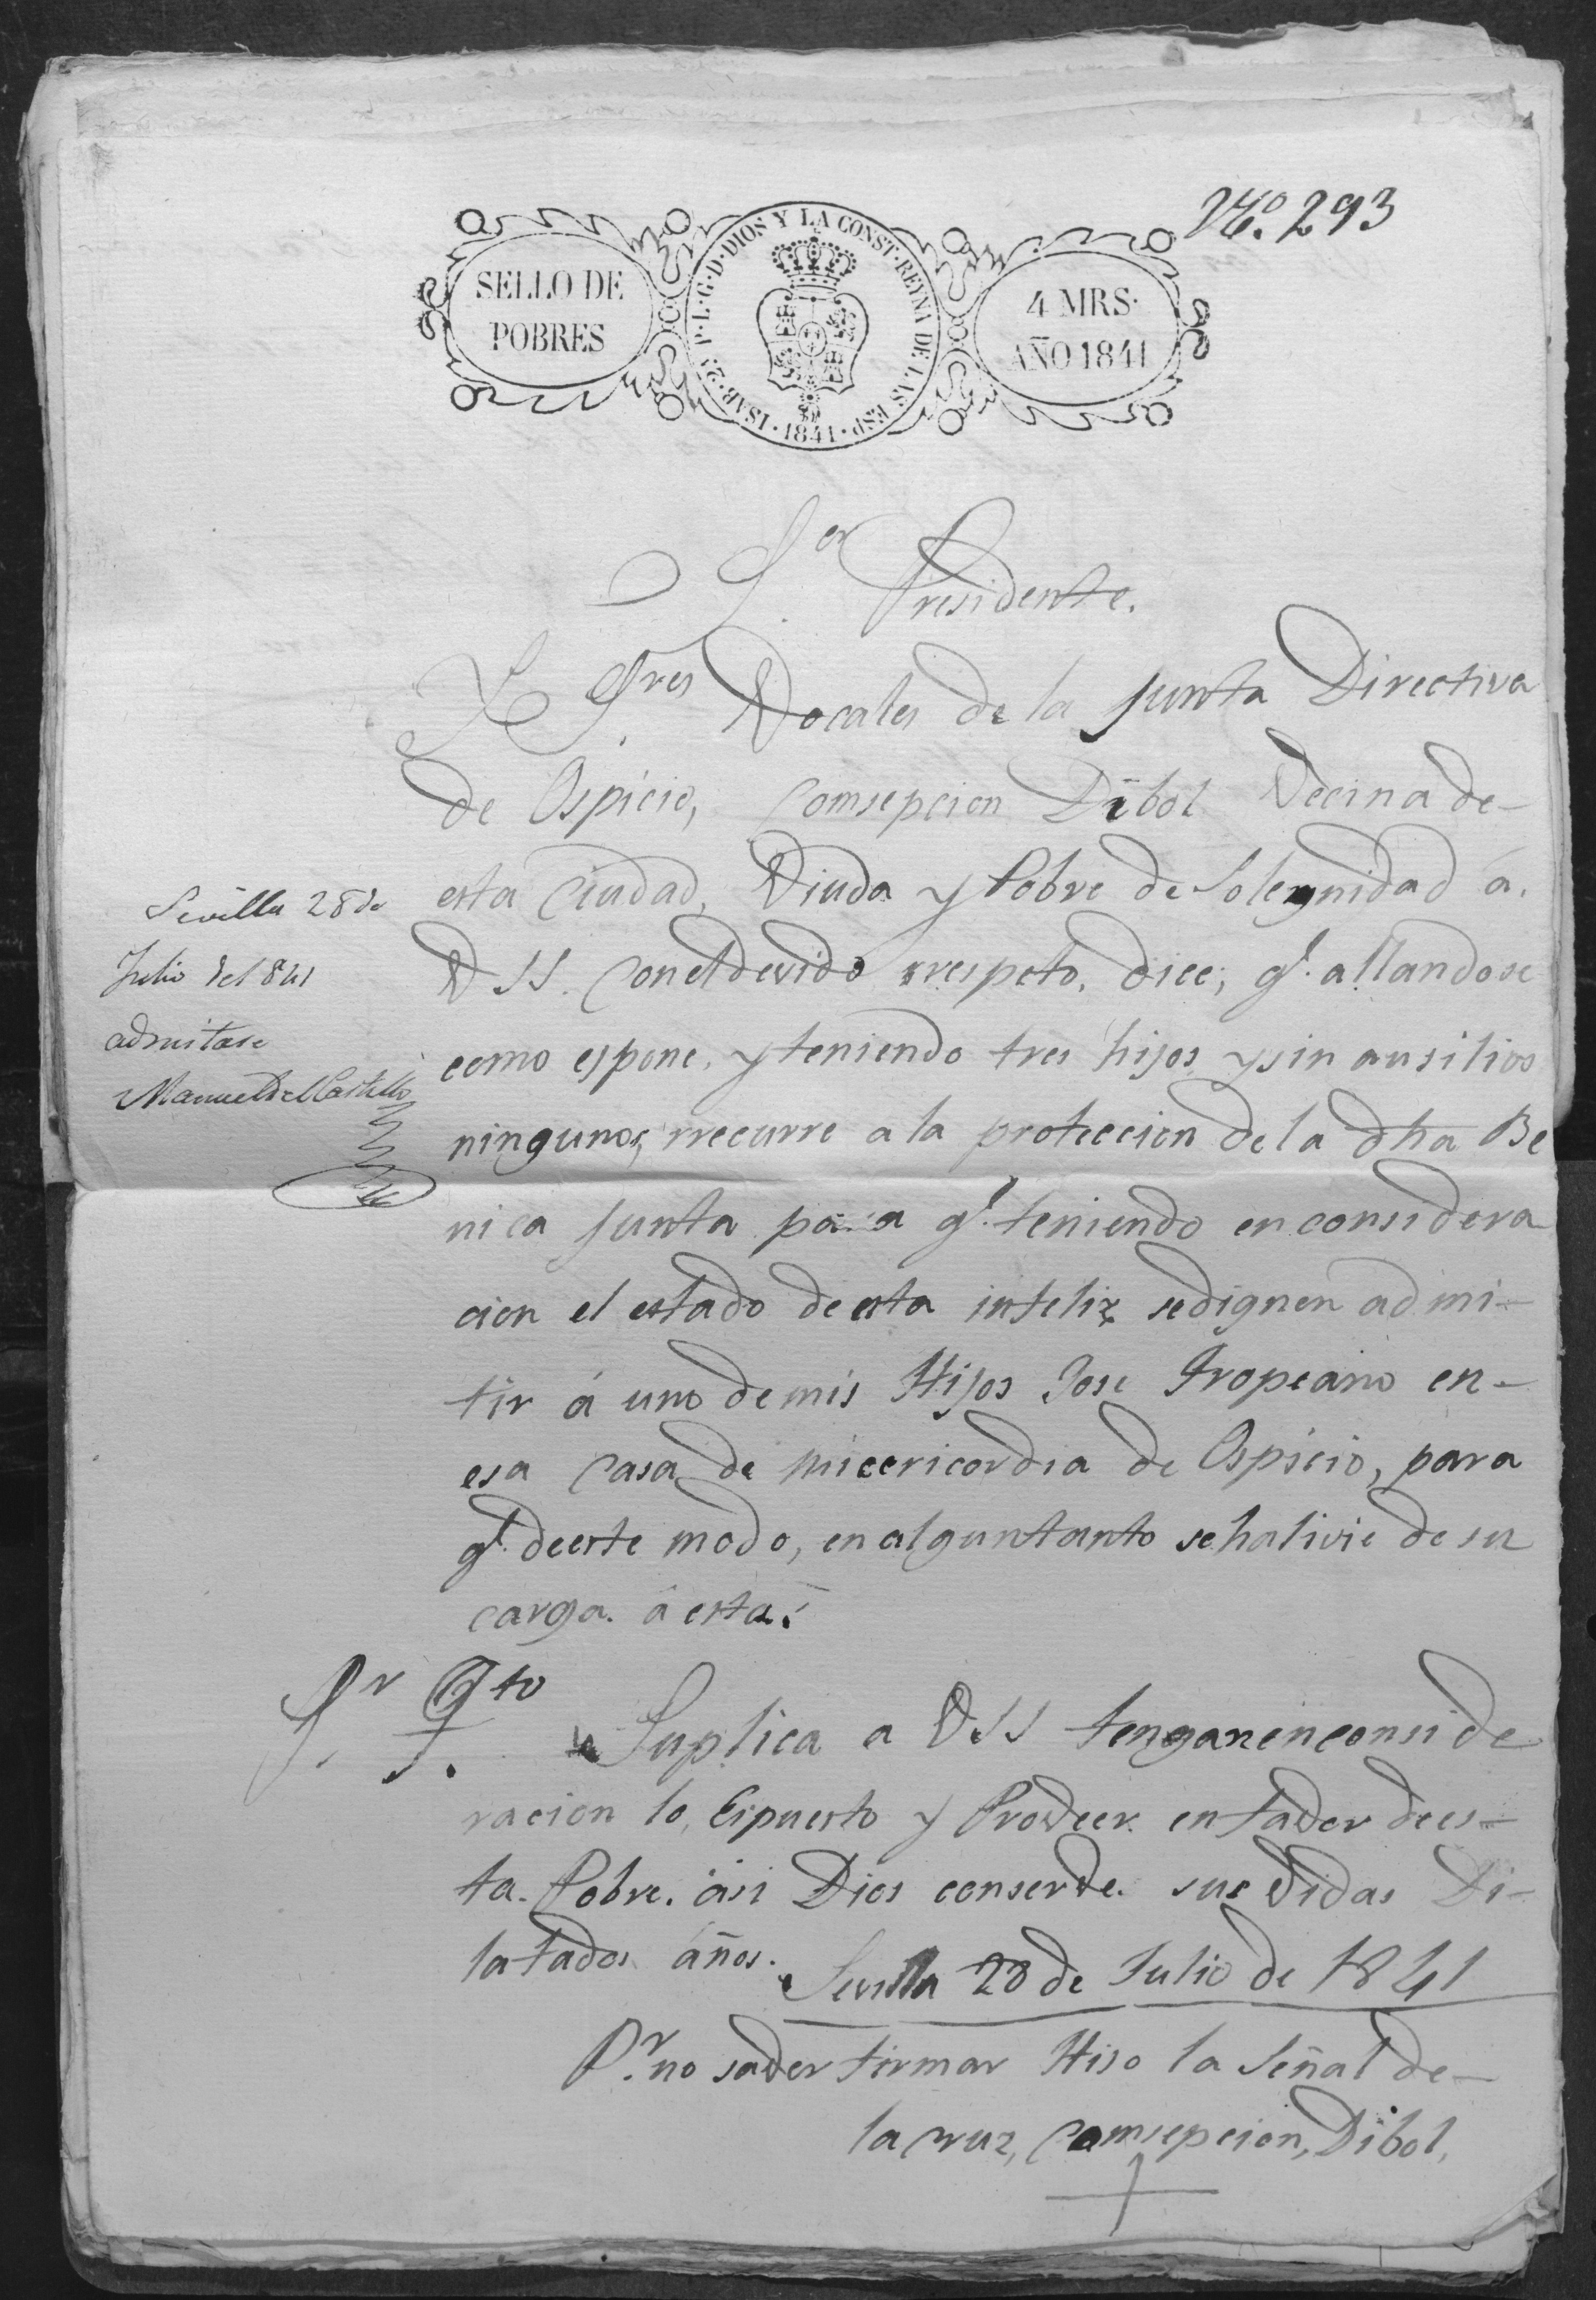 Nº. 293
SELLO DE
POBRES
ISAB. 2ª P. L. G. D. DIOS Y LA CONST. REYNA DE LAS ESP. 1841
4 MRS.
AÑO 1841
Sor. Presidente.
Y Sres Vocales de la Junta Directiva
de Ospicio, Comsepcion Dibol Vecina de
esta Ciudad, Viuda y Pobre de Solegnidad á.
VSS. Con el devido rrespeto, dice; q.e allandose
como espone, y teniendo tres hijos y sin ausilios
ningunos, rrecurre a la proteccion de la dha Be
nica Junta para q.e teniendo en considera
cion el estado de esta infeliz se dignen admi-
tir á uno de mis Hijos Jose Tropeano en-
esa Casa de micericordia de Ospicio, para
q.e de este modo, en algun tanto se halivie de su
carga. á esta.
Pr. Tto.
Suplica a VSS tengan en conside
racion lo, Espuesto y Proveer en favor de es-
ta. Pobre. asi Dios conserve. sus Vidas Di-
latados años.
Sevilla 28 de Julio de 1841
Pr. no saver firmar Hiso la Señal de-
la cruz, Comsepcion, Dibol,
Sevilla 28 de
Julio de 1841
admitase
Manuel del Castillo